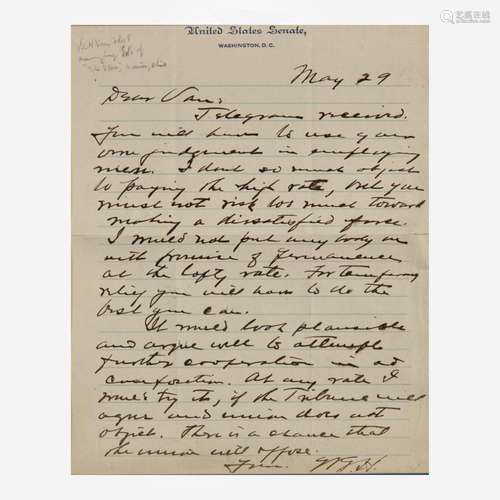 易拍全球
United States Senate,
WASHINGTON, D.C.
of
Marion, Ohio
May 29
Dear Van:
Telegram received.
You will have to use your
own judgment in employing
men. I dont so much object
to paying the high rate, but you
must not risk too much toward
making a dissatisfied force.
I would not put any body on
with promise of permanence
at the lofty rate. For temporary
relief you will have to do the
best you can.
It would look plausible
and argue well to attempt
further cooperation in ad
composition. At any rate I
would try it, if the Tribune will
agree and union does not
object. There is a chance that
the union will oppose.
Yours. W.G.H.